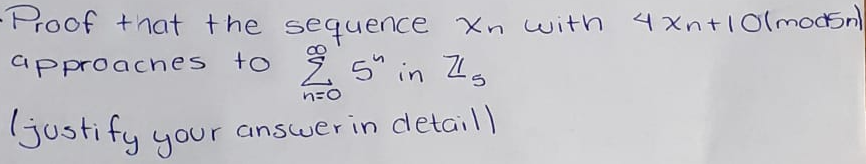 Proof that the sequence xn with 4xn+10(mod5n)
approaches to ∞Σn=0 5ⁿ in ℤ₅
(justify your answer in detail)